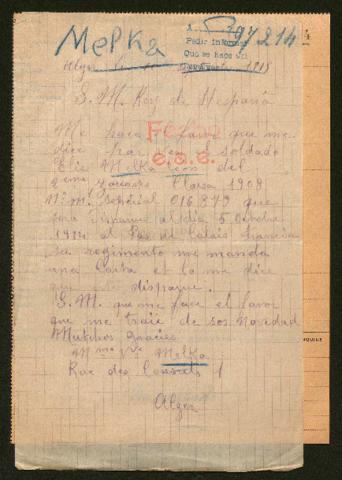 Melka
97214
Pedir in
Que se hace en
Alger 1918
S. M. Rey de Hespaña
Me haca el favor que me
dice el soldado
Elie Melka leon del
2eme zouaves Classa 1908
N: m: Special 016879 que
disparue al dia 5 Octobre
1914 al Pas de Calais
su regimento me manda
una Carta et la me dice
que disparue.
S. M. que me face el favor
que me traie de sos novedad
Mutchos gracies
Mme Vve Melka
Rue des Consuls 1
Alger
e.a.e.